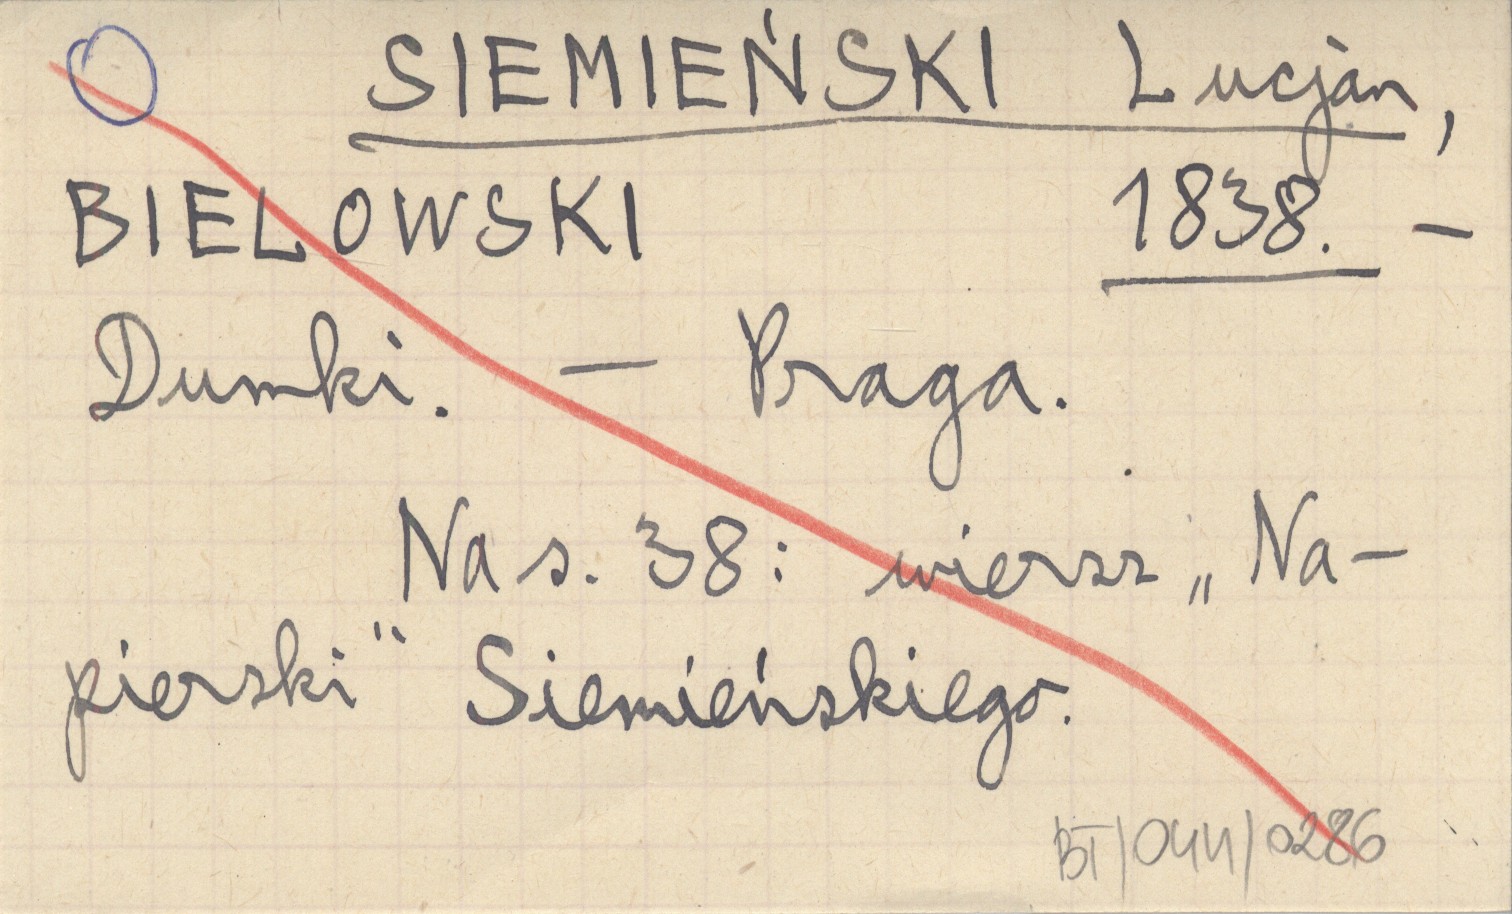 SIEMIEŃSKI Lucjan,
BIELOWSKI 1838. —
Dumki. — Praga.
Na s. 38: wiersz „Na-
pierski" Siemieńskiego.
BT/044/0286